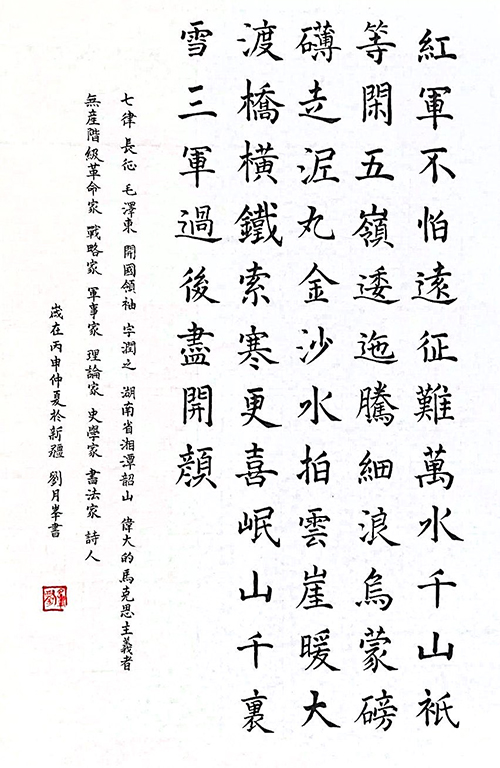 紅軍不怕遠征難萬水千山衹
等閑五嶺逶迤騰細浪烏蒙磅
礴走泥丸金沙水拍雲崖暖大
渡橋橫鐵索寒更喜岷山千裏
雪三軍過後盡開顔
七律 長征 毛澤東 開國領袖 字潤之 湖南省湘潭韶山 偉大的馬克思主義者
無産階級革命家 戰略家 軍事家 理論家 史學家 書法家 詩人
歲在丙申仲夏於新疆 劉月峯書